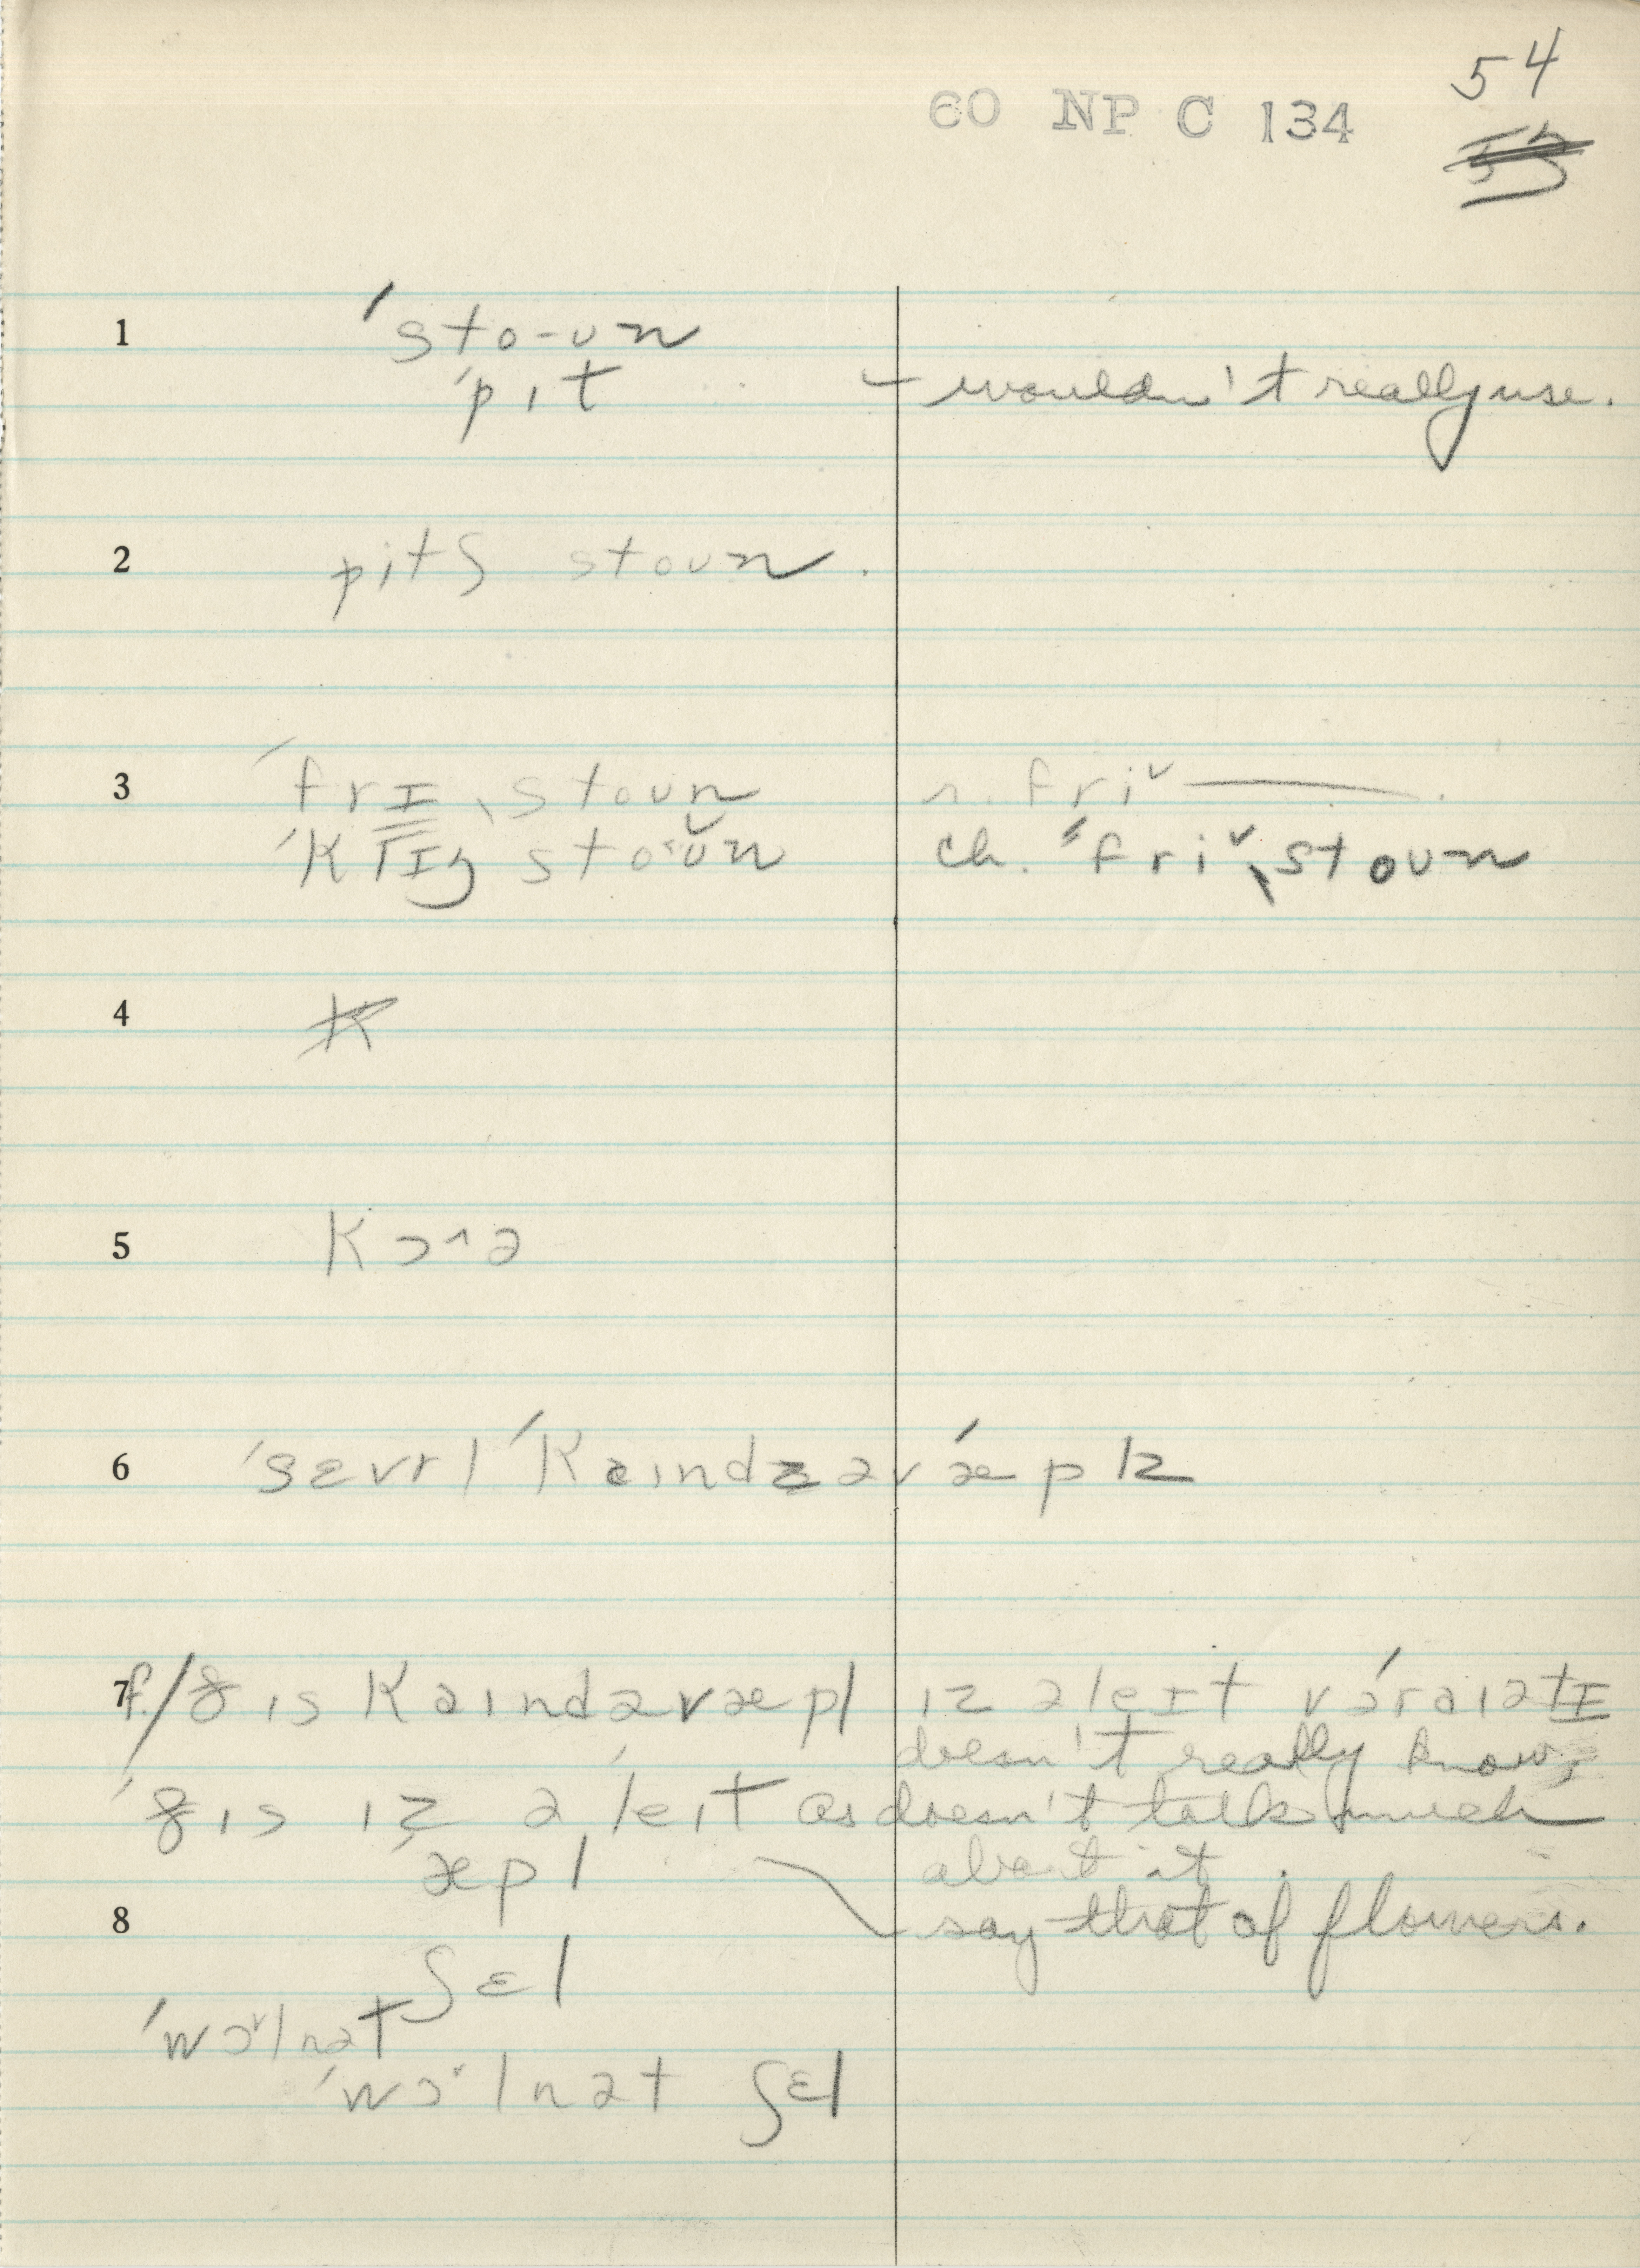 54
60 NP C 134
55
1 ˈsto-ʊn
ˈpɪt – wouldn't really use.
2 pitʃ stoʊn.
3 ˈfrɪˌstoʊn r. fri˅ ———.
ˈklɪŋ sto˂ʊ̆n ch. "fri˅ˌstoʊn
4 K
5 kɔ^ə
6 ˈsɛvrl ˈkaɪndz əv ǽplz
7 f./ðɪs kaɪnd əv æpl ɪz ə leɪt vəráɪətɪ
doesn't really know,
ˈðɪs ɪz ə ˈleɪt as doesn't talk much
æpl about it.
8 say that of flowers.
ʃɛl
ˈwɔ˅lnət
ˈwɔ˅lnət ʃɛl